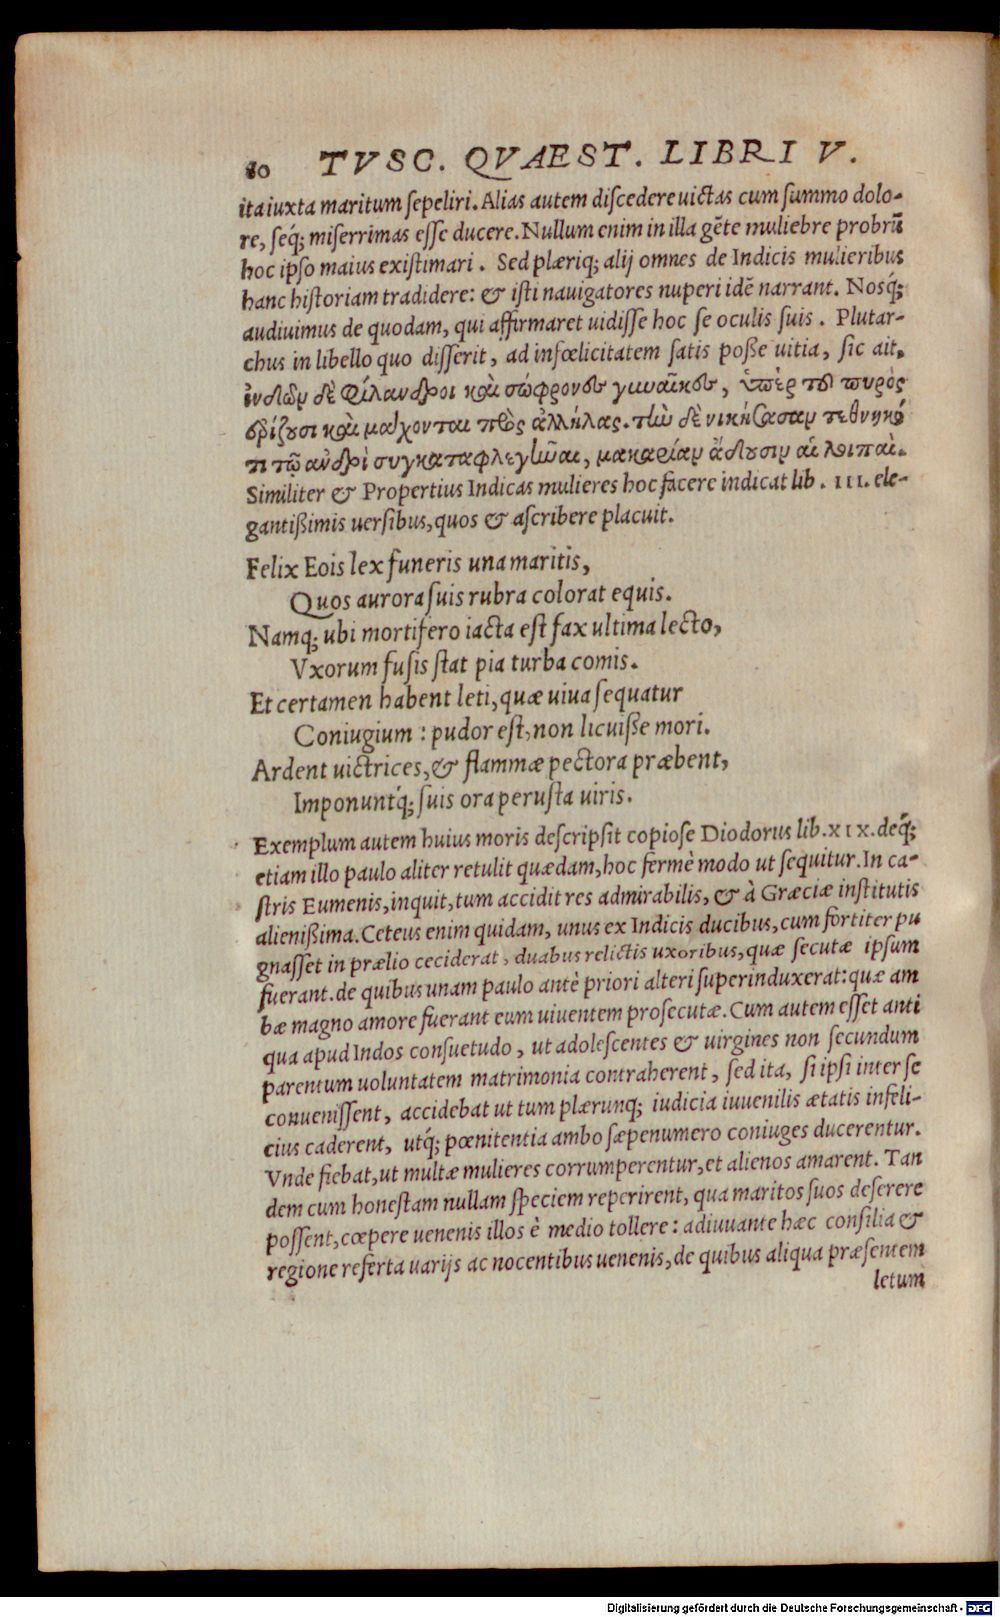 80 TVSC. QVAEST. LIBRI V.
ita iuxta maritum sepeliri. Alias autem discedere uictas cum summo dolo-
re, seq́; miserrimas esse ducere. Nullum enim in illa gẽte muliebre probrũ
hoc ipso maius existimari. Sed plæriq; alij omnes de Indicis mulieribus
hanc historiam tradidere: & isti nauigatores nuperi idẽ narrant. Nosq́;
audiuimus de quodam, qui affirmaret uidisse hoc se oculis suis. Plutar-
chus in libello quo disserit, ad infœlicitatem satis posse uitia, sic ait.
ἰνδῶν δὲ φίλανδροι καὶ σώφρονες γυναῖκες, ὑπὲρ τοῦ πυρὸς
ἐρίζουσι καὶ μάχονται πρὸς ἀλλήλας. τὴν δὲ νικήσασαν τεθνηκό
τι τῷ ανδρὶ συγκαταφλεγῆναι, μακαρίαν ἄδουσιν αἱ λοιπαὶ.
Similiter & Propertius Indicas mulieres hoc facere indicat lib. III. ele-
gantissimis uersibus, quos & ascribere placuit.
Felix Eois lex funeris una maritis,
Quos aurora suis rubra colorat equis.
Namq; ubi mortifero iacta est fax ultima lecto,
Vxorum fusis stat pia turba comis.
Et certamen habent leti, quæ uiua sequatur
Coniugium: pudor est, non licuisse mori.
Ardent uictrices, & flammæ pectora præbent,
Imponuntq́; suis ora perusta uiris.
Exemplum autem huius moris descripsit copiose Diodorus lib. XIX. deq́;
etiam illo paulo aliter retulit quædam, hoc fermè modo ut sequitur. In ca-
stris Eumenis, inquit, tum accidit res admirabilis, & à Græciæ institutis
alienissima. Ceteus enim quidam, unus ex Indicis ducibus, cum fortiter pu
gnasset in prælio ceciderat, duabus relictis uxoribus, quæ secutæ ipsum
fuerant. de quibus unam paulo antè priori alteri superinduxerat: quæ am
bæ magno amore fuerant eum uiuentem prosecutæ. Cum autem esset anti
qua apud Indos consuetudo, ut adolescentes & uirgines non secundum
parentum uoluntatem matrimonia contraherent, sed ita, si ipsi inter se
conuenissent, accidebat ut tum plærunq; iudicia iuuenilis ætatis infeli-
cius caderent, utq́; pœnitentia ambo sæpenumero coniuges ducerentur.
Vnde fiebat, ut multæ mulieres corrumperentur, et alienos amarent. Tan
dem cum honestam nullam speciem reperirent, qua maritos suos deserere
possent, cœpere uenenis illos è medio tollere: adiuuante hæc consilia &
regione referta uarijs ac nocentibus uenenis, de quibus aliqua præsentem
letum
Digitalisierung gefördert durch die Deutsche Forschungsgemeinschaft - DFG